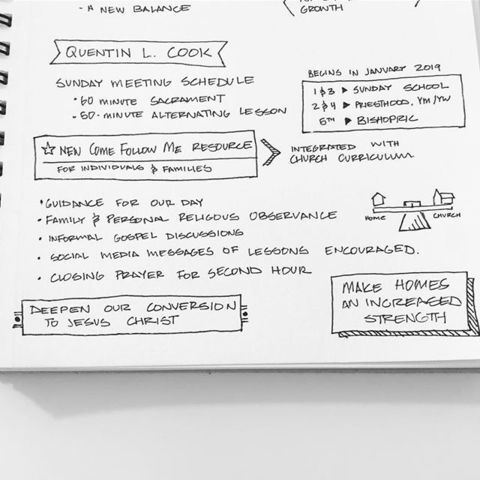 - A NEW BALANCE
GROWTH
QUENTIN L. COOK
SUNDAY MEETING SCHEDULE
• 60 MINUTE SACRAMENT
• 50-MINUTE ALTERNATING LESSON
BEGINS IN JANUARY 2019
1 & 3 ▶ SUNDAY SCHOOL
2 & 4 ▶ PRIESTHOOD, YM/YW
5TH ▶ BISHOPRIC
☆ NEW COME FOLLOW ME RESOURCE
FOR INDIVIDUALS & FAMILIES
INTEGRATED WITH
CHURCH CURRICULUM
• GUIDANCE FOR OUR DAY
• FAMILY & PERSONAL RELIGOUS OBSERVANCE
• INFORMAL GOSPEL DISCUSSIONS
• SOCIAL MEDIA MESSAGES OF LESSONS ENCOURAGED.
• CLOSING PRAYER FOR SECOND HOUR
HOME CHURCH
DEEPEN OUR CONVERSION
TO JESUS CHRIST
MAKE HOMES
AN INCREASED
STRENGTH